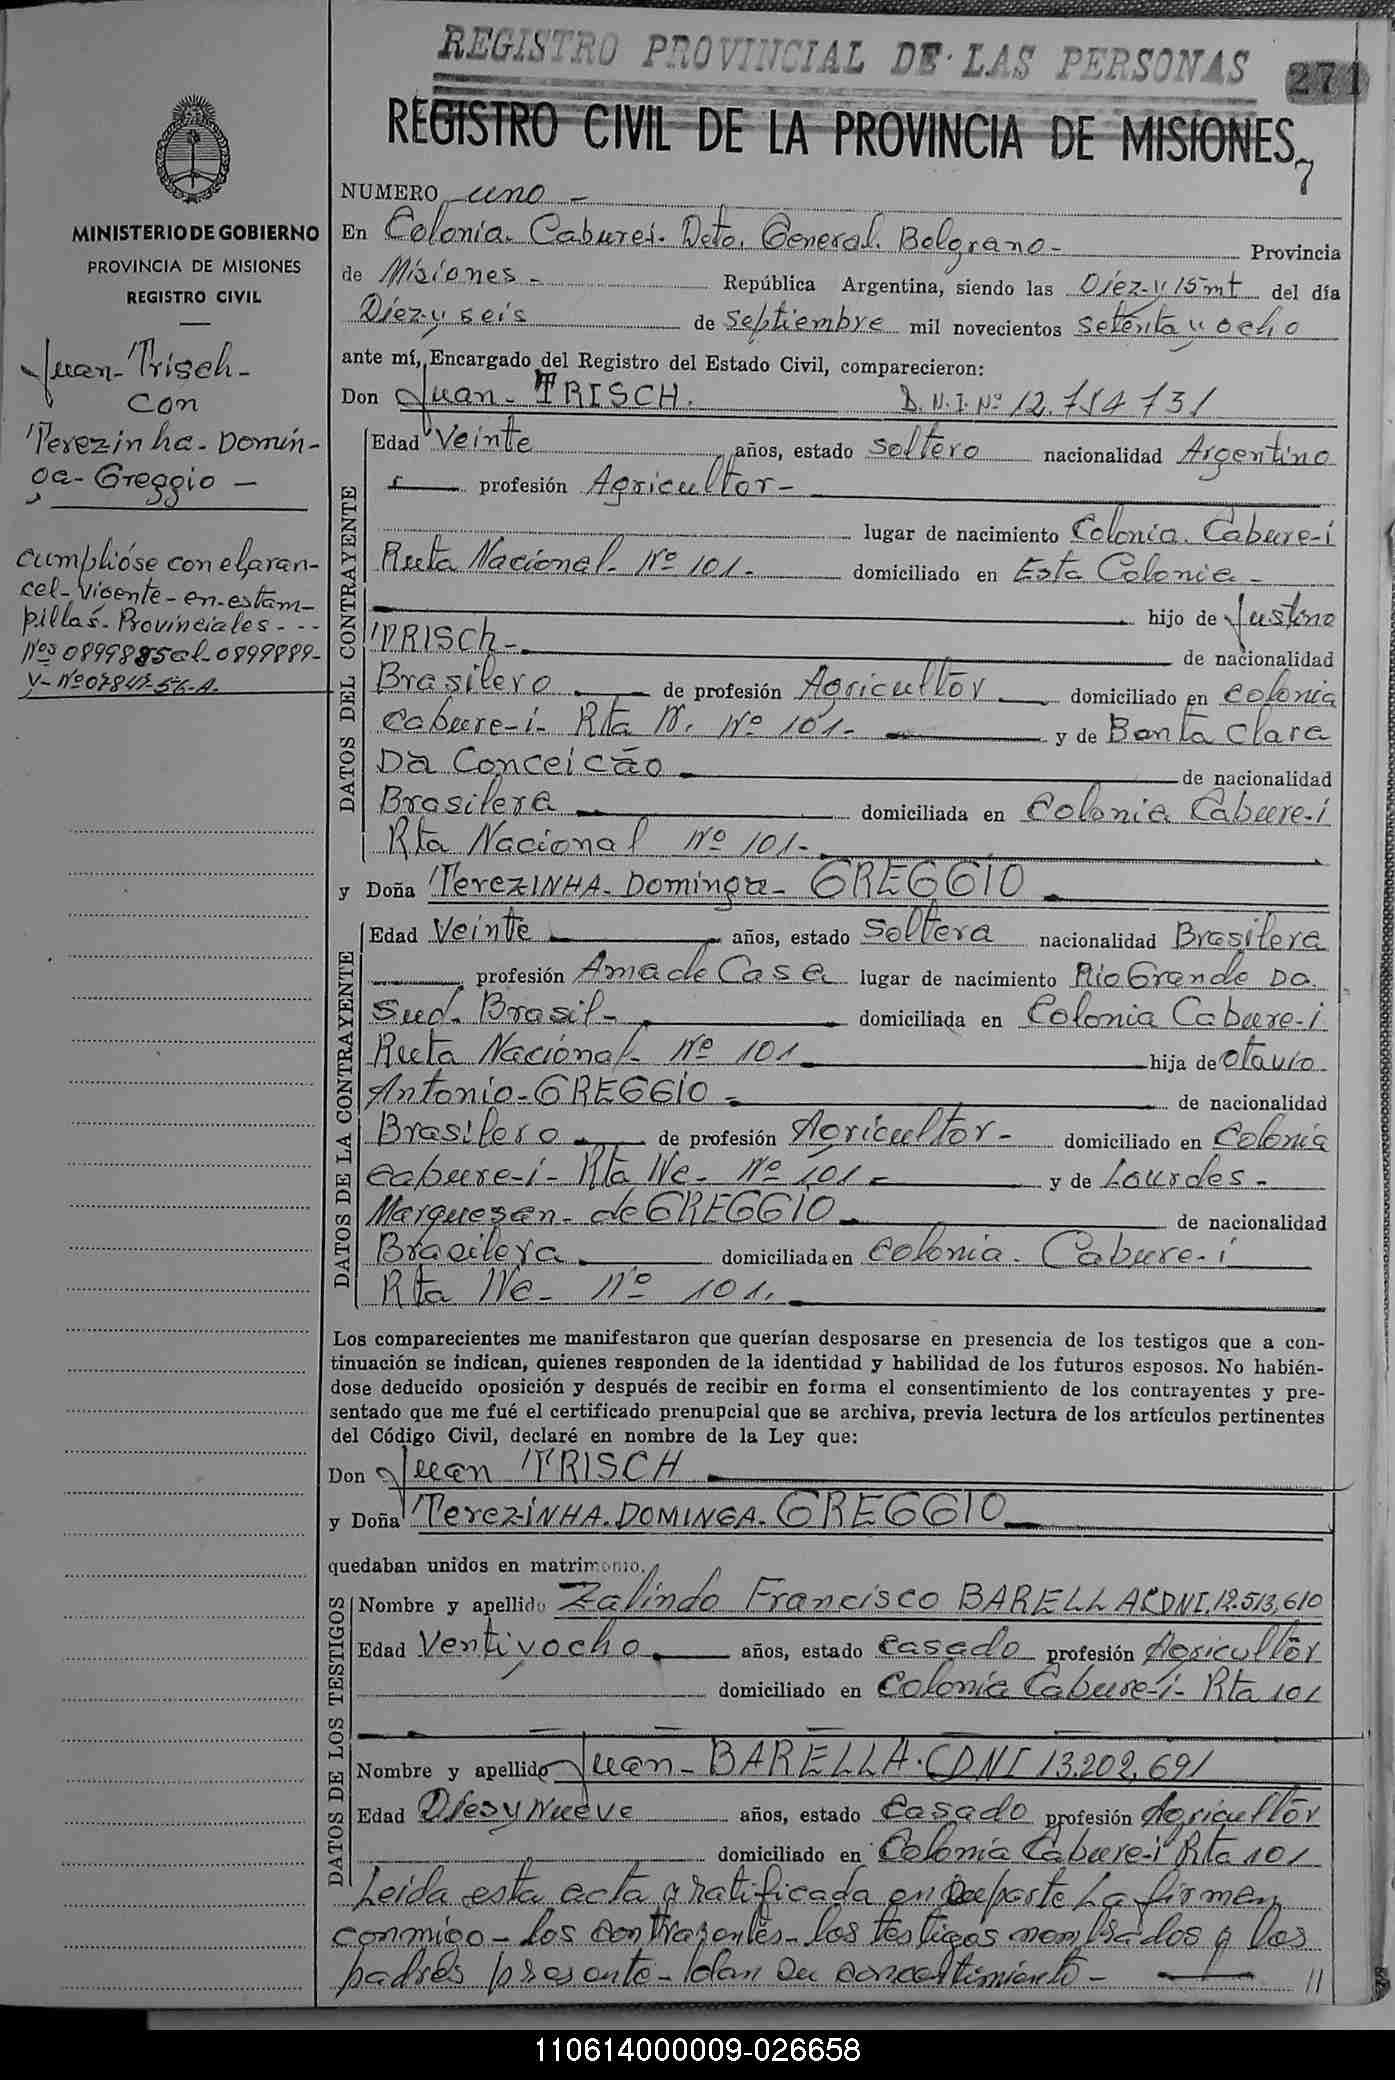 REGISTRO PROVINCIAL DE LAS PERSONAS
271
REGISTRO CIVIL DE LA PROVINCIA DE MISIONES
7
MINISTERIO DE GOBIERNO
PROVINCIA DE MISIONES
REGISTRO CIVIL
Juan - Trisch -
con
Terezinha - Domin-
ga - Greggio -
cumplióse con el aran-
cel - vigente - en - estam-
pillas - Provinciales - - -
Nos 0899885 al - 0899889 -
y - Nº
NUMERO uno -
En Colonia - Caburei - Dpto. General Belgrano - Provincia
de Misiones - República Argentina, siendo las Diez y 15 mt del día
Diez y seis de Septiembre mil novecientos setenta y ocho
ante mí, Encargado del Registro del Estado Civil, comparecieron:
Don Juan - TRISCH. D.N.I. Nº 12.
DATOS DEL CONTRAYENTE
Edad Veinte años, estado soltero nacionalidad Argentino
profesión Agricultor -
lugar de nacimiento Colonia Cabure-i
Ruta Nacional Nº 101 - domiciliado en Esta Colonia -
hijo de Justino
TRISCH - de nacionalidad
Brasilero de profesión Agricultor domiciliado en Colonia
Cabure-i - Rta N. Nº 101 - y de Santa Clara
Da Conceicão de nacionalidad
Brasilera domiciliada en Colonia Cabure-i
Rta Nacional Nº 101 -
y Doña Terezinha - Dominga - GREGGIO
DATOS DE LA CONTRAYENTE
Edad Veinte años, estado Soltera nacionalidad Brasilera
profesión Ama de Casa lugar de nacimiento Rio Grande Do
Sud - Brasil - domiciliada en Colonia Cabure-i
Ruta Nacional - Nº 101 hija de Otavio
Antonio - GREGGIO - de nacionalidad
Brasilero de profesión Agricultor - domiciliado en Colonia
Cabure-i - Rta Nc - Nº 101 - y de Lourdes -
Marquesan - de GREGGIO de nacionalidad
Brasilera domiciliada en Colonia - Cabure-i
Rta Nc - Nº 101.
Los comparecientes me manifestaron que querían desposarse en presencia de los testigos que a con-
tinuación se indican, quienes responden de la identidad y habilidad de los futuros esposos. No habién-
dose deducido oposición y después de recibir en forma el consentimiento de los contrayentes y pre-
sentado que me fué el certificado prenupcial que se archiva, previa lectura de los artículos pertinentes
del Código Civil, declaré en nombre de la Ley que:
Don Juan TRISCH
y Doña Terezinha - DOMINGA - GREGGIO
quedaban unidos en matrimonio.
DATOS DE LOS TESTIGOS
Nombre y apellido Zalindo Francisco BARELLA CDNI. 12.513,610
Edad Ventiyocho años, estado casado profesión Agricultor
domiciliado en Colonia Cabure-i - Rta 101
Nombre y apellido Juan - BARELLA - CDNI 13.202,691
Edad Diesynueve años, estado casado profesión Agricultor
domiciliado en Colonia Cabure-i Rta 101
Leida esta acta y ratificada en parte La firman
conmigo - los contrayentes - los testigos nombrados y los
padres presente - dan su consentimiento -
110614000009-026658